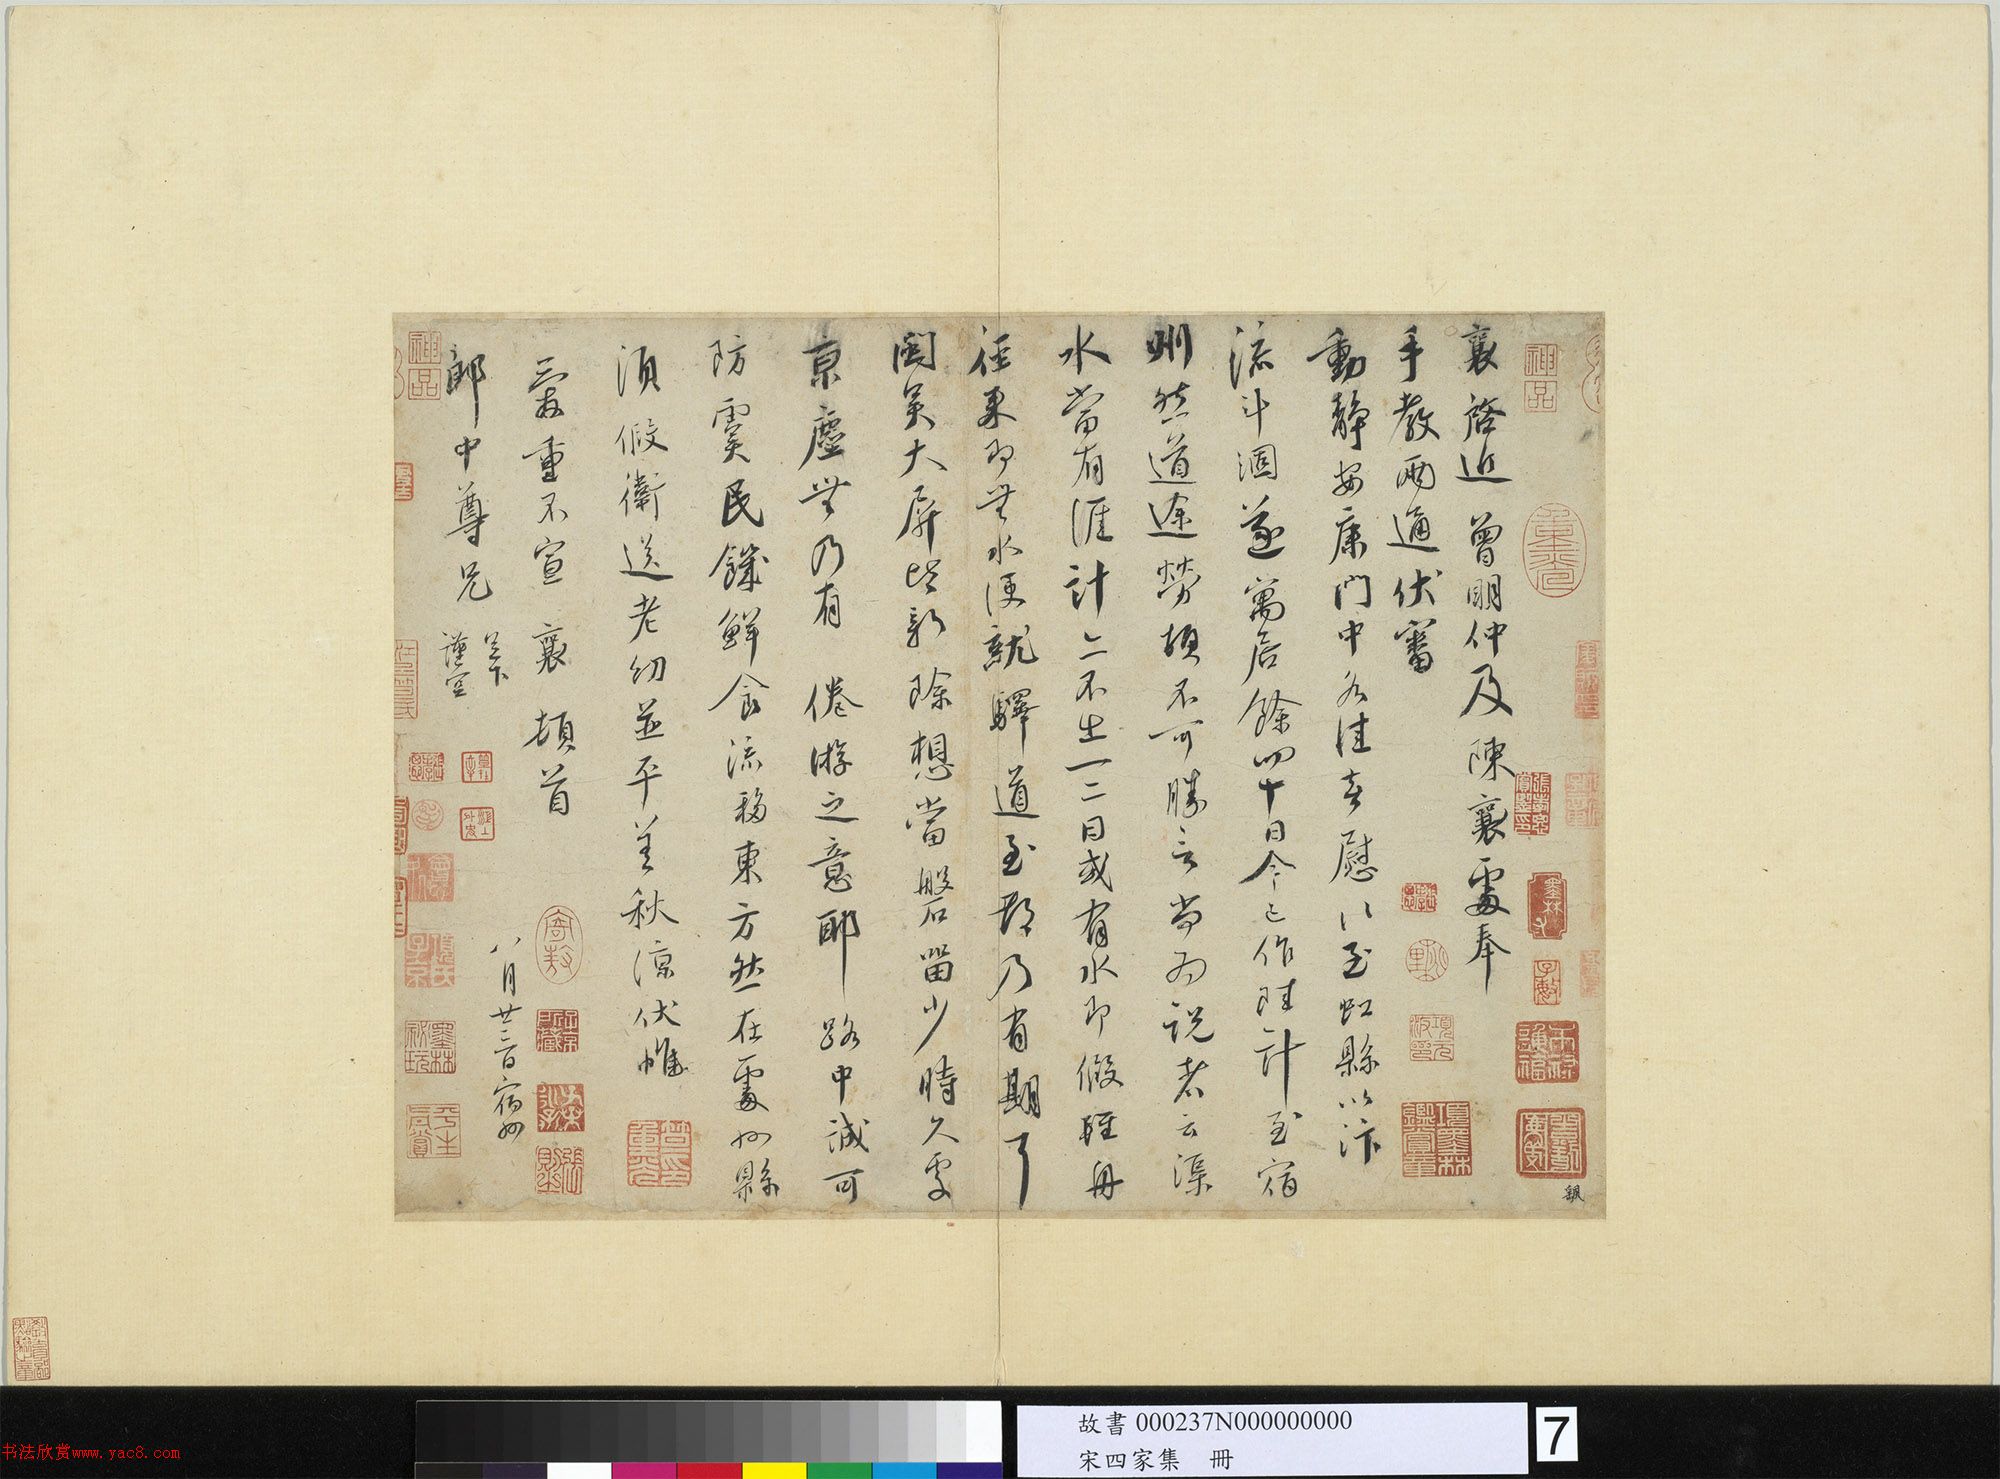 襄啓近曾明仲及陳襄處奉
手教兩通伏審
動靜安康門中各佳喜慰以至虹縣以汴
流斗涸遂寓居餘四十日今已作陸計至宿
州然道途勞頓不可勝言尚為說者云渠
水當有涯計亦不出一二日或有水即假輕舟
徑來即無水便就驛道至都乃有期耳
閩吳大屏皆新除想當磐留少時久處
京塵無乃有倦游之意耶路中誠可
防虞民饑鮮食流移東方然在處州縣
須假衛送老幼並平善秋涼伏惟
愛重不宣襄頓首
郎中尊兄足下
謹空
八月廿三日宿州
神品
神品
故書 000237N000000000
宋四家集 冊
7
书法欣赏www.yac8.com